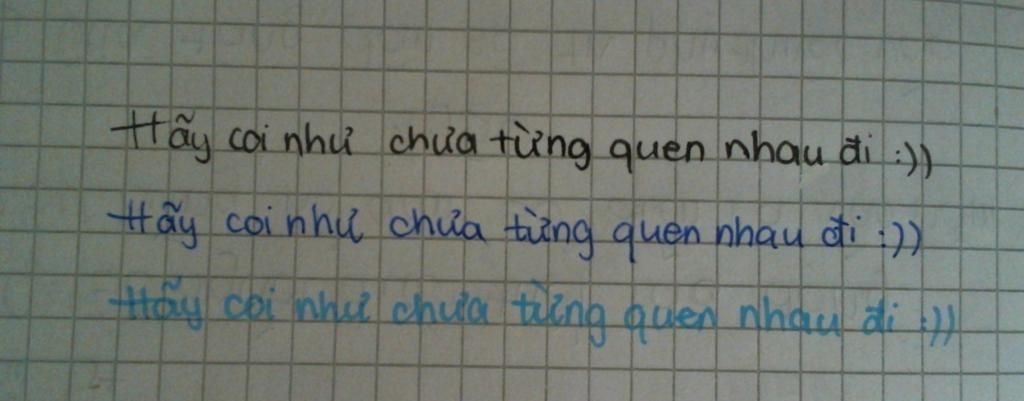 Hãy coi như chưa từng quen nhau đi :))
Hãy coi như chưa từng quen nhau đi :))
Hãy coi như chưa từng quen nhau đi :))